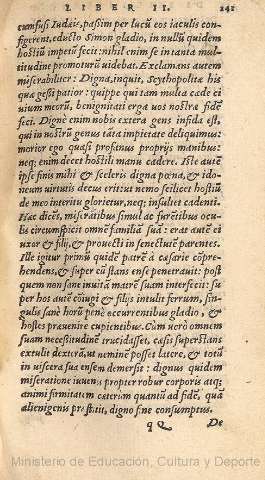 LIBER II. 241
cumfusi Iudæis, passim per lucū eos iaculis con
figerent, educto Simon gladio, in nullū quidem
hostiū impetū fecit: nihil enim se in tanta mul
titudine promoturū uidebat. Exclamans autem
miserabiliter: Digna, inquit, Scythopolitæ his
quæ gessi patior: quippe qui tam multa cæde ci
uium meorū, benignitati erga uos nostræ fidē
feci. Digne enim nobis extera gens infida est,
qui in nostrū genus tāta impietate deliquimus:
morior ego quasi profanus proprijs manibus:
neq; enim decet hostili manu cadere. Iste autē
ipse finis mihi & sceleris digna pœna, & ido-
neum uirtutis decus erit: ut nemo scilicet hostiū
de meo interitu glorietur, neq; insultet cadenti.
Hæc dicēs, miserātibus simul ac furētibus ocu
lis circumspicit omnē familiā suā: erat autē ei
uxor & filij, & prouecti in senectutē parentes.
Ille igitur primū quidē patrē à cæsarie cōpre-
hendens, & super eū stans ense penetrauit: post
quem non sane inuitā matrē suam interfecit: su
per hos autē cōiugi & filijs intulit ferrum, sin-
gulis sanè horū penè occurrentibus gladio, &
hostes præuenire cupientibus. Cum uerò omnem
suam necessitudinē trucidasset, cæsis superstans
extulit dexterā, ut neminē posset latere, & totū
in uiscera sua ensem demersit: dignus quidem
miseratione iuuenis propter robur corporis atq;
animi firmitatem cæterum quantū ad fidē, quā
alienigenis præstitit, digno fine consumptus.
q Q De
Ministerio de Educación, Cultura y Deporte